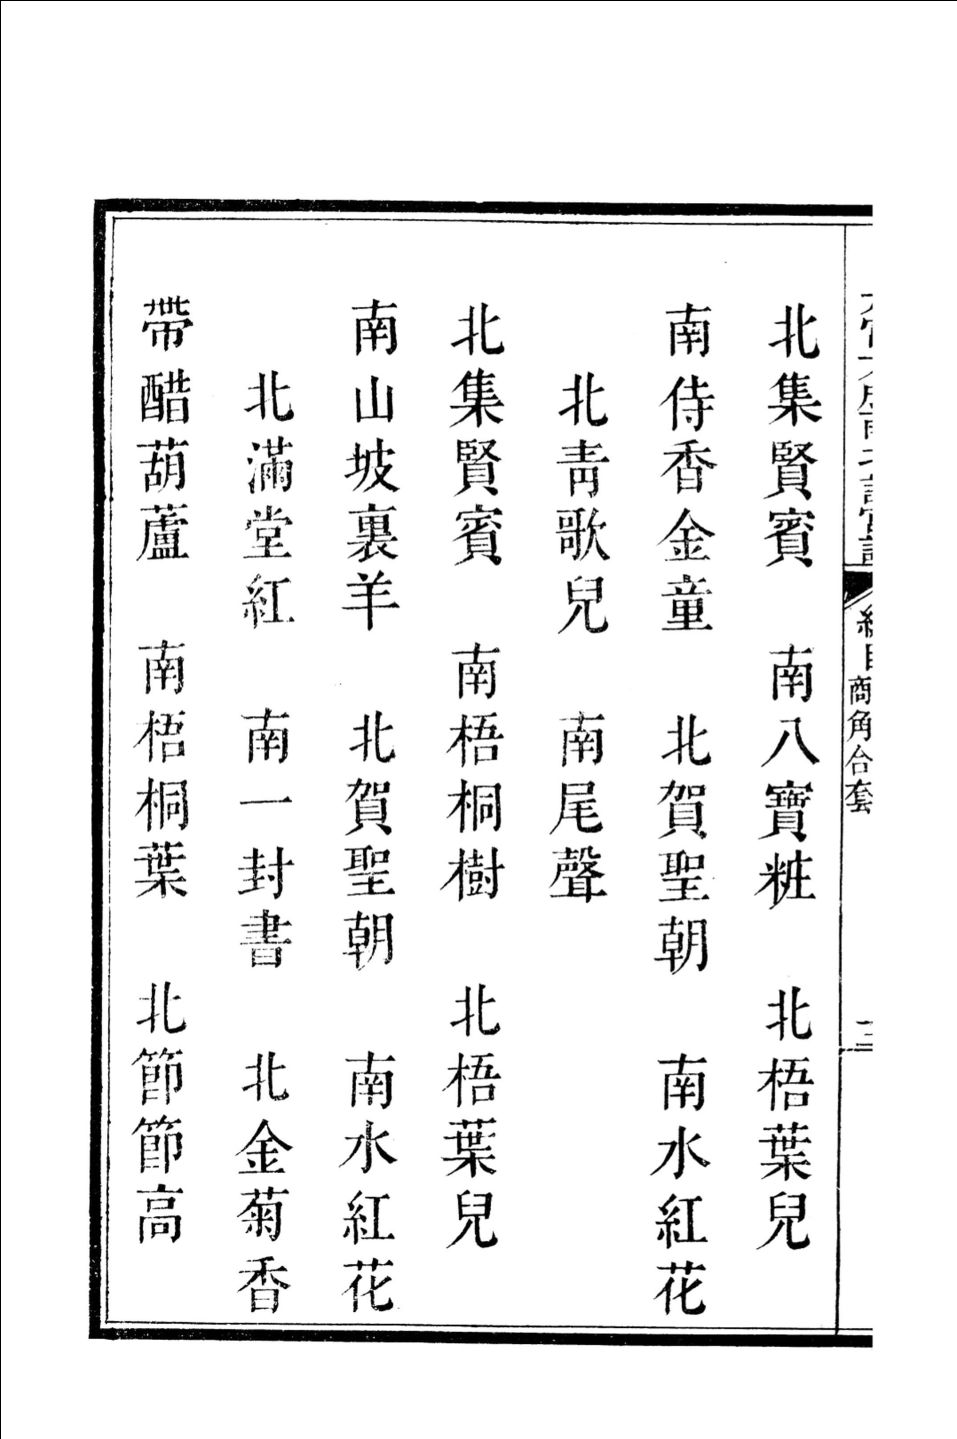 總目 商角合套
北集賢賓　南八寶粧　北梧葉兒
南侍香金童　北賀聖朝　南水紅花
北青歌兒　南尾聲
北集賢賓　南梧桐樹　北梧葉兒
南山坡裏羊　北賀聖朝　南水紅花
北滿堂紅　南一封書　北金菊香
帶醋葫蘆　南梧桐葉　北節節高